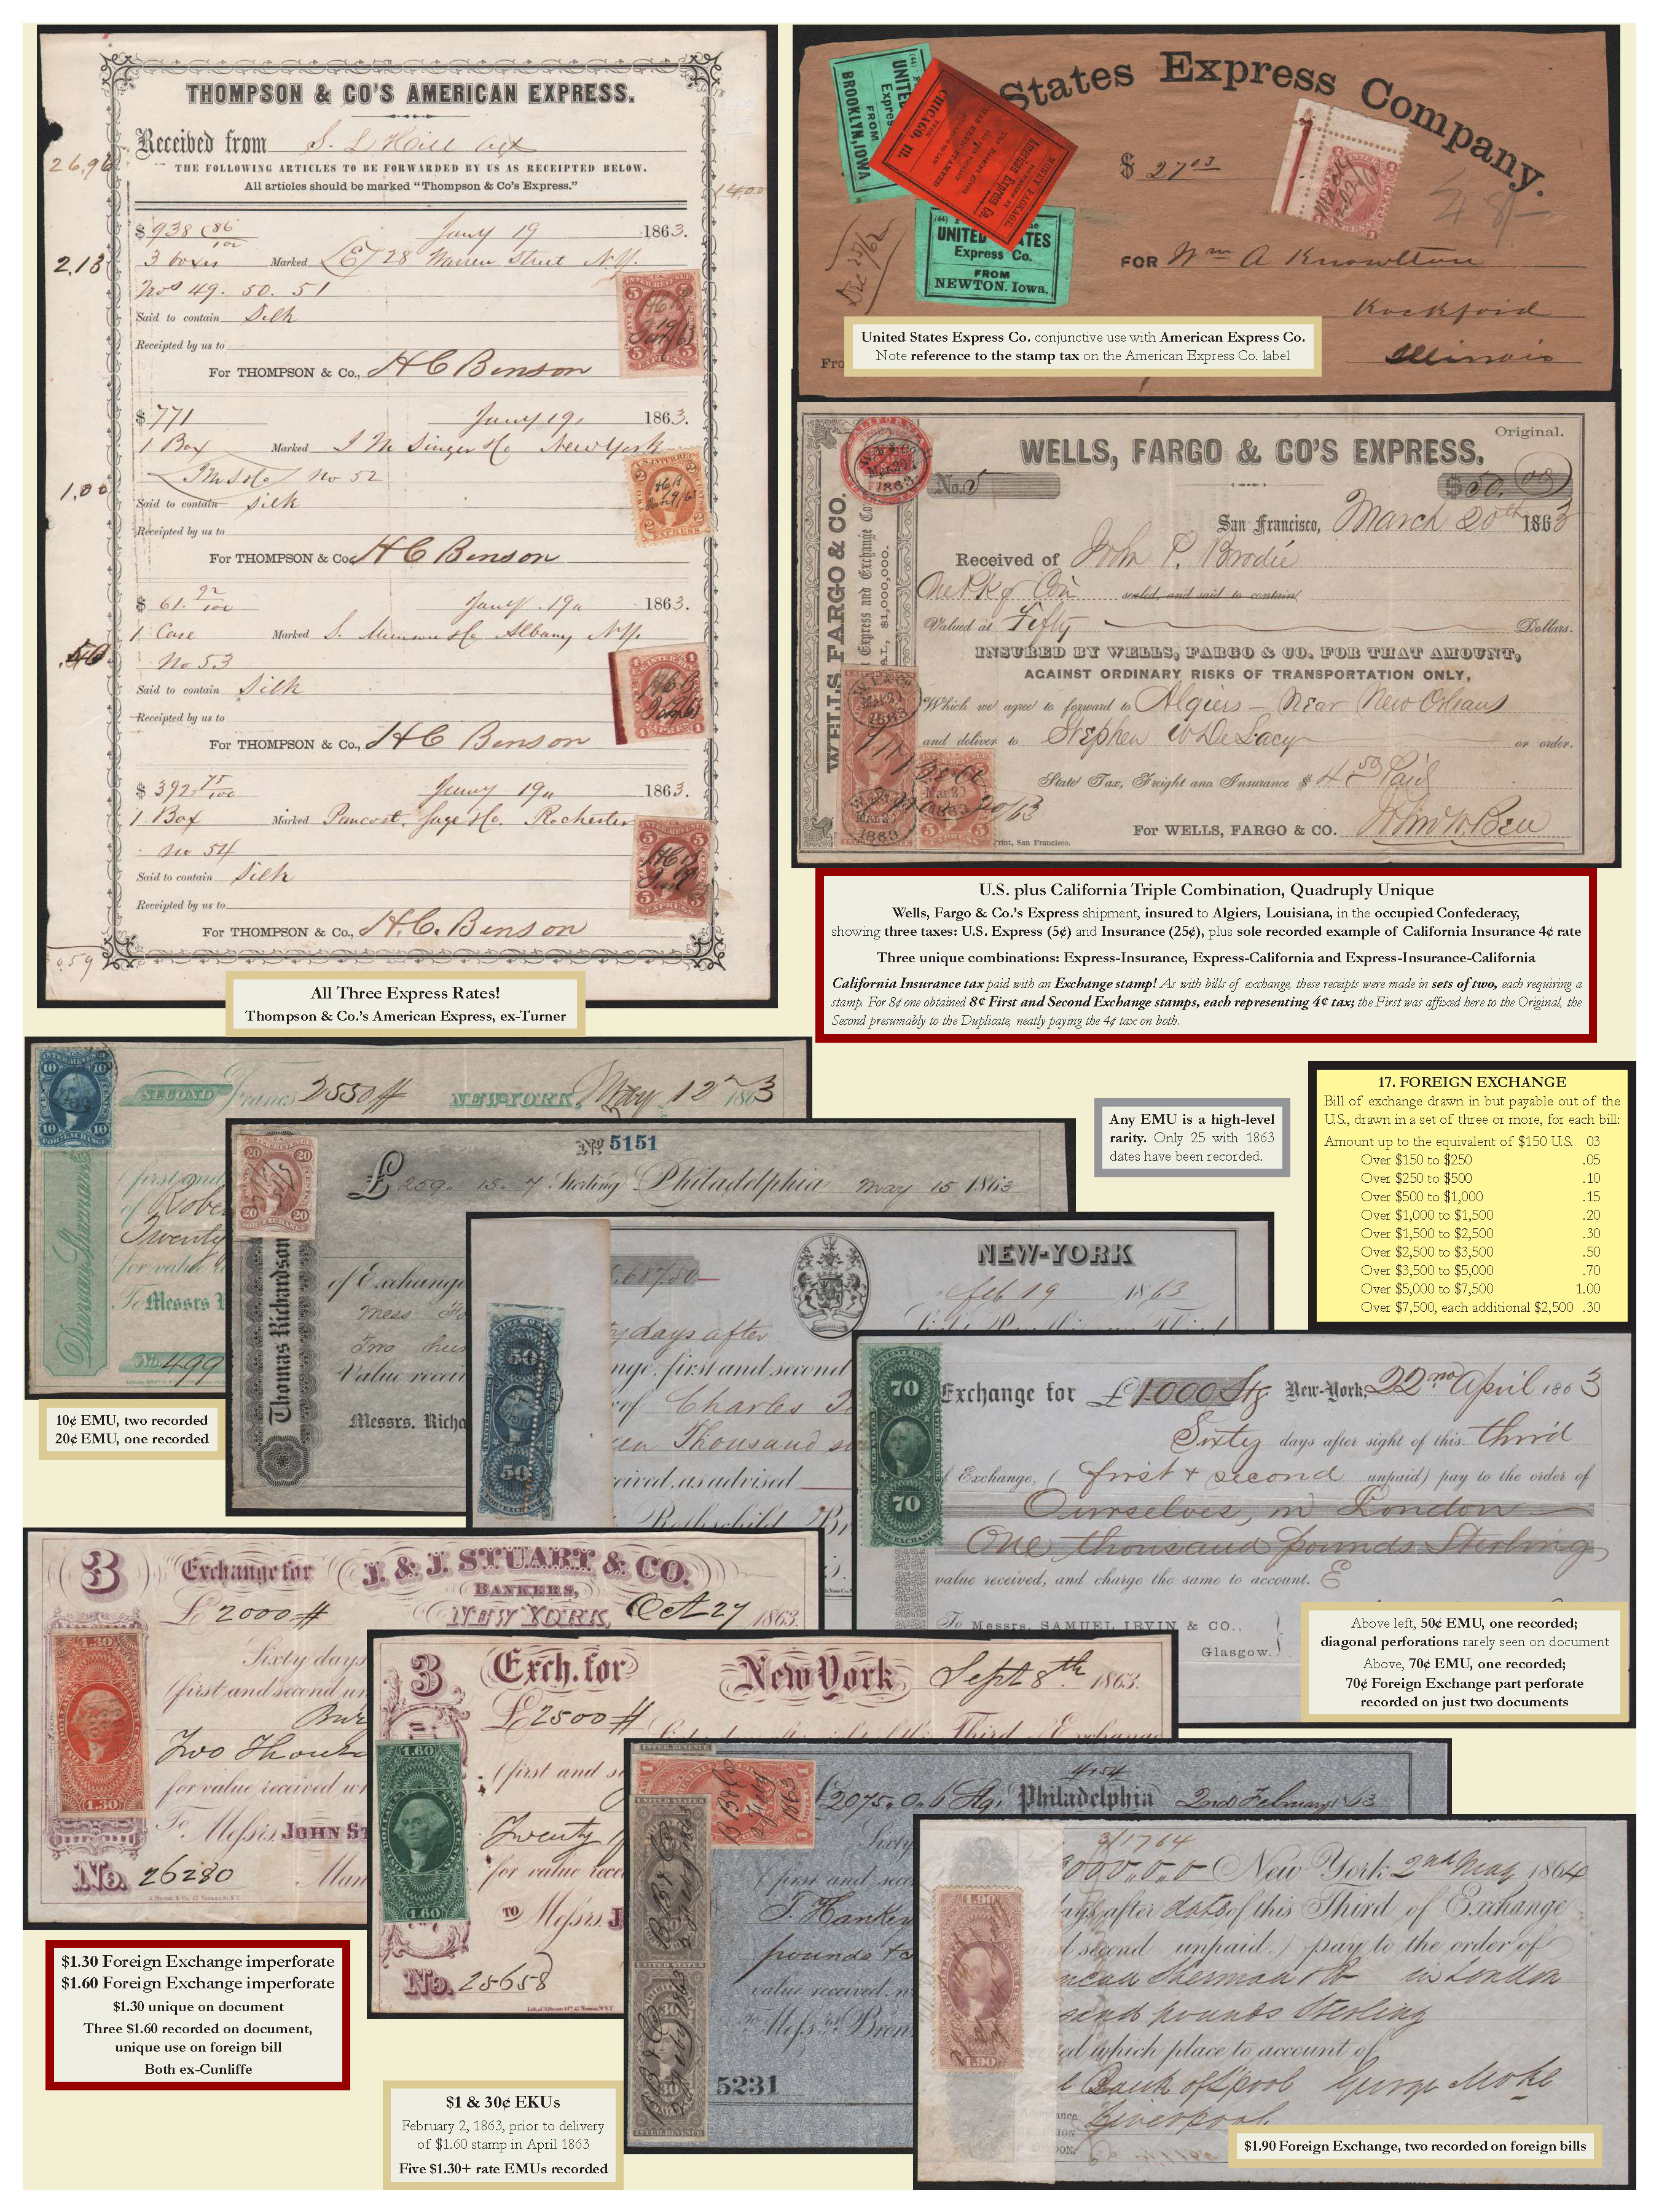 THOMPSON & CO'S AMERICAN EXPRESS.
Received from S. L. Hill agt
THE FOLLOWING ARTICLES TO BE FORWARDED BY US AS RECEIPTED BELOW.
All articles should be marked "Thompson & Co's Express."
26,96
1400
$ 938 86/100 Jany 19 1863.
2,13
3 boxes Marked 28 Warren Street N.Y.
Nos 49. 50. 51
Said to contain Silk
Receipted by us to
For THOMPSON & Co., H C Benson
$ 771 Jany 19, 1863.
1 Box Marked I M Singer & Co New York
1,00
no 52
Said to contain Silk
Receipted by us to
For THOMPSON & Co., H C Benson
$ 61. 92/100 Jany 19 1863.
1 Case Marked S. Munson & Co Albany N.Y.
.50
No 53
Said to contain Silk
Receipted by us to
For THOMPSON & Co., H C Benson
$ 392 75/100 Jany 19 1863.
1 Box Marked Pancost, Sage & Co. Rochester
no 54
Said to contain Silk
Receipted by us to
For THOMPSON & Co., H. C. Benson
All Three Express Rates!
Thompson & Co.'s American Express, ex-Turner
States Express Company.
BROOKLYN, IOWA
FROM
CHICAGO, Ill.
MONEY PACKAGE.
American Express Co.
UNITED STATES
Express Co.
FROM
NEWTON. Iowa.
$ 27 03
48/-
Dec 29/62
FOR Wm A Knowlton
Rockford
Illinois
United States Express Co. conjunctive use with American Express Co.
Note reference to the stamp tax on the American Express Co. label
Original.
WELLS, FARGO & CO'S EXPRESS.
No. 5 $ 50. 00
San Francisco, March 20th 1863
WELLS FARGO & CO.
Express and Exchange Co
$1,000,000.
Received of John P. Brodie
One Pkg Coin sealed, and said to contain
Valued at Fifty Dollars.
INSURED BY WELLS, FARGO & CO. FOR THAT AMOUNT,
AGAINST ORDINARY RISKS OF TRANSPORTATION ONLY,
Which we agree to forward to Algiers - Near New Orleans
and deliver to Stephen W DeLacy or order.
State Tax, Freight and Insurance $ 4 50 Paid
For WELLS, FARGO & CO.
Print, San Francisco.
U.S. plus California Triple Combination, Quadruply Unique
Wells, Fargo & Co.'s Express shipment, insured to Algiers, Louisiana, in the occupied Confederacy,
showing three taxes: U.S. Express (5¢) and Insurance (25¢), plus sole recorded example of California Insurance 4¢ rate
Three unique combinations: Express-Insurance, Express-California and Express-Insurance-California
California Insurance tax paid with an Exchange stamp! As with bills of exchange, these receipts were made in sets of two, each requiring a
stamp. For 8¢ one obtained 8¢ First and Second Exchange stamps, each representing 4¢ tax; the First was affixed here to the Original, the
Second presumably to the Duplicate, neatly paying the 4¢ tax on both.
SECOND Francs 2550 NEW-YORK, May 12 1863
Duncan, Sherman
To Messrs
No. 499
10¢ EMU, two recorded
20¢ EMU, one recorded
No 5151
£ 259. 15. 7 Sterling Philadelphia May 15 1863
Thomas Richardson
of Exchange
Value recei
Messrs. Richa
Any EMU is a high-level
rarity. Only 25 with 1863
dates have been recorded.
17. FOREIGN EXCHANGE
Bill of exchange drawn in but payable out of the
U.S., drawn in a set of three or more, for each bill:
Amount up to the equivalent of $150 U.S. 03
Over $150 to $250 .05
Over $250 to $500 .10
Over $500 to $1,000 .15
Over $1,000 to $1,500 .20
Over $1,500 to $2,500 .30
Over $2,500 to $3,500 .50
Over $3,500 to $5,000 .70
Over $5,000 to $7,500 1.00
Over $7,500, each additional $2,500 .30
NEW-YORK
Feb 19 1863
days after
nge, first and second
of Charles
Thousand
eived, as advised
Rothschild
Exchange for £1000 Stg New-York, 22nd April 1863
Sixty days after sight of this third
Exchange, ( first & second unpaid) pay to the order of
Ourselves, in London
One thousand pounds Sterling
value received, and charge the same to account. E
To Messrs. SAMUEL IRVIN & CO.,
Glasgow.
Above left, 50¢ EMU, one recorded;
diagonal perforations rarely seen on document
Above, 70¢ EMU, one recorded;
70¢ Foreign Exchange part perforate
recorded on just two documents
3 Exchange for J. & J. STUART & CO.
BANKERS,
£ 2000 NEW YORK, Oct 27 1863.
Sixty days
(first and second un
Two Thous
for value received
To Messrs. JOHN ST
No. 26280 Man
3 Exch. for New York Sept 8th 1863.
£ 2500
Third of Exchange
(first and s
Twenty
for value rece
TO Messrs. J
No. 25658
$1.30 Foreign Exchange imperforate
$1.60 Foreign Exchange imperforate
$1.30 unique on document
Three $1.60 recorded on document,
unique use on foreign bill
Both ex-Cunliffe
4154
2075. 0. 6 Stg. Philadelphia 2nd February 1863
Sixty
(first and seco
T. Hankey
pounds
value received,
Messrs Brow
5231
$1 & 30¢ EKUs
February 2, 1863, prior to delivery
of $1.60 stamp in April 1863
Five $1.30+ rate EMUs recorded
3/1764
3000,0,0 New York 2nd May 1864
days after date of this Third of Exchange
second unpaid.) pay to the order of
Duncan Sherman & Co in London
sand pounds Sterling
ed which place to account of
Bank of L'pool George Moke
Liverpool.
$1.90 Foreign Exchange, two recorded on foreign bills